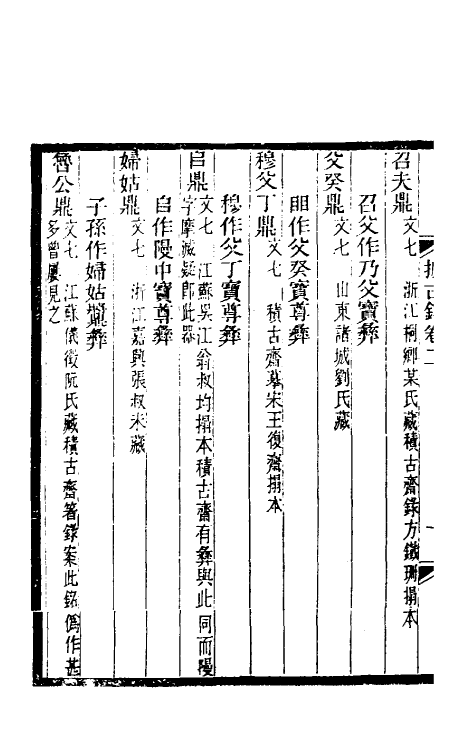 攈古錄卷二
一
召夫鼎 文七 浙江桐鄉某氏藏積古齋錄方鐵珊搨本
召父作乃父寶彝
父癸鼎 文七 山東諸城劉氏藏
作父癸寶尊彝
穆父丁鼎 文七 積古齋摹宋王復齋搨本
穆作父丁寶尊彝
𠂤鼎 文七 江蘇吳江翁叔均搨本積古齋有彝與此同而㝩
字摩滅疑即此器
𠂤作㝩中寶尊彝
婦姑鼎 文七 浙江嘉興張叔未藏
子孫作婦姑彝
魯公鼎 文七 江蘇儀徵阮氏藏積古齋箸錄案此銘偽作甚
多曾屢見之